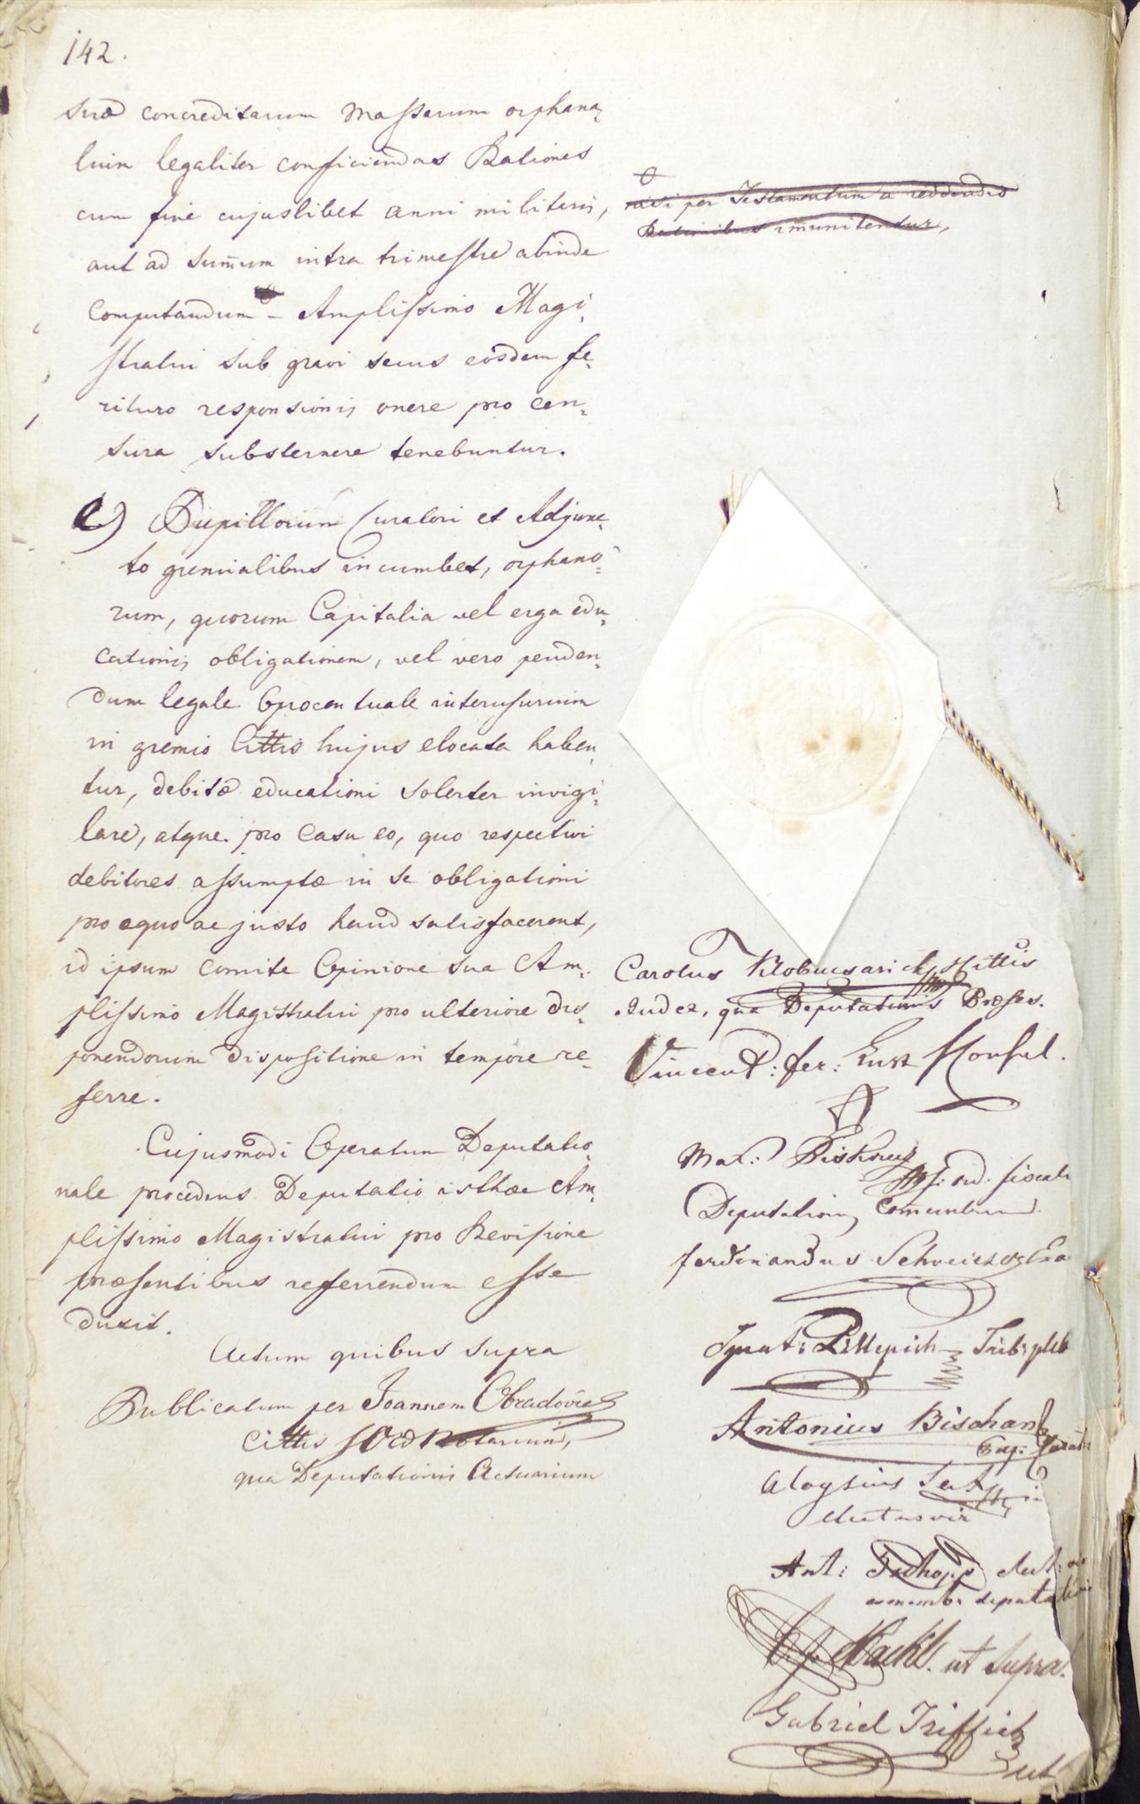 142.
suæ concreditarum Massarum orphana,
lium legaliter conficiendas Rationes
cum fine cujuslibet anni militaris,
aut ad sum̄um intra trimestre abinde
computandum - Amplissimo Magi,
stratui sub gravi secus eosdem fe,
rituro responsionis onere pro cen,
sura substernere tenebuntur.
nisi per Testamentum a reddendis
Rationibus im̄unitentur,
e) Pupillorum Curatori et Adjunc,
to gremialibus incumbet, orphano,
rum, quorum Capitalia vel erga edu,
cationis obligationem, vel vero penden,
dum legale 6procentuale interusurium
in gremio Cittis hujus elocata haben,
tur, debitæ educationi solerter invigi,
lare, atque pro casu eo, quo respectivi
debitores assumptæ in se obligationi
pro æquo ac justo haud satisfacerent,
id ipsum comite Opinione sua Am,
plissimo Magistratui pro ulteriore dis,
ponendorum dispositione in tempore re,
ferre.
Cujusmodi Operatum Deputatio,
nale procedens Deputatio isthæc Am,
plissimo Magistratui pro Revisione
præsentibus referrendum esse
duxit.
Actum quibus supra
Publicatum per Joannem Obradovics
Cittis Ord Notarium,
qua Deputationis Actuarium
Carolus Klobusarich Cittis
Judex, qua Deputationis Præses.
Vincent: fer:
Max: Piskovez
ord. fiscal
Deputationis
ferdinandus
Ignat:
Antonius
Aloysius
electus vir
Ant: elect:
membr deputat
ut supra.
Gabriel